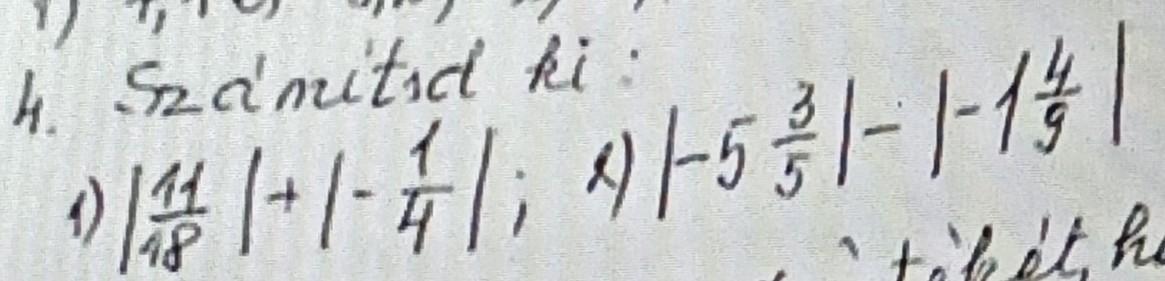 4. Számítsd ki:
1) |11/18| + |-1/4|; 2) |-5 3/5| - |-1 4/9|